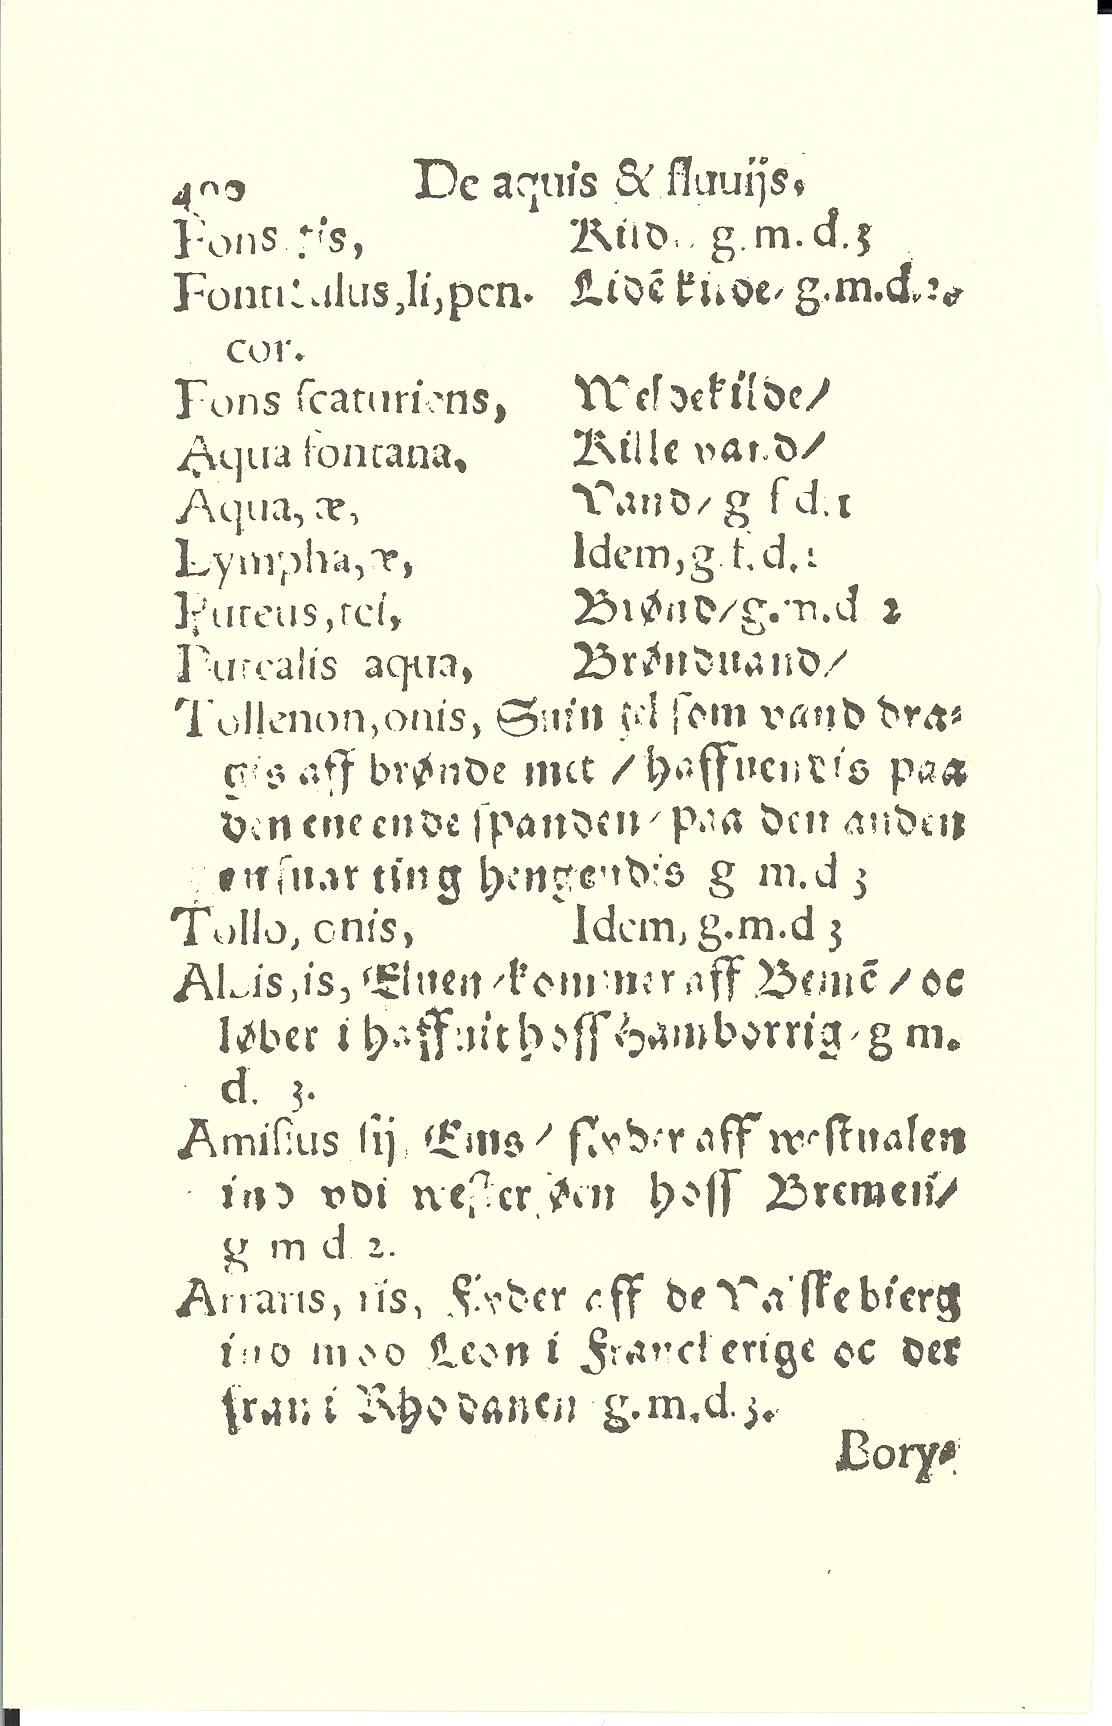 400 De aquis & fluuijs,
Fons tis, Kild. g.m.d.3
Fonticulus,li,pen. Lidē kilde/ g.m.d.2.
cor.
Fons ſcaturiens, Weldekilde/
Aqua fontana, Kille vand/
Aqua, æ, Vand/ g f d.1
Lympha,æ, Idem,g.f.d.1
Puteus,tei, Brønd/g.m.d 2
Putealis aqua, Brønduand/
Tollenon,onis, Suin ſom vand dra⸗
gis aff brønde met / haffuendis paa
den ene ende ſpanden/ paa den anden
en ſuar ting hengendis g m.d 3
Tollo, onis, Idem, g.m.d 3
Albis,is, Eluen/kommer aff Bemē / oc
løber i haffuit hoſſ Hamborrig/ g m.
d. 3.
Amiſius ſij, Ems/ flyder aff weſtualen
ind vdi weſter ſøen hoſſ Bremen/
g m d 2.
Arraris, ris, flyder aff de Valſke bierg
ind moo Leon i Franckerige oc der
fran i Rhodanen g.m.d.3.
Bory⸗